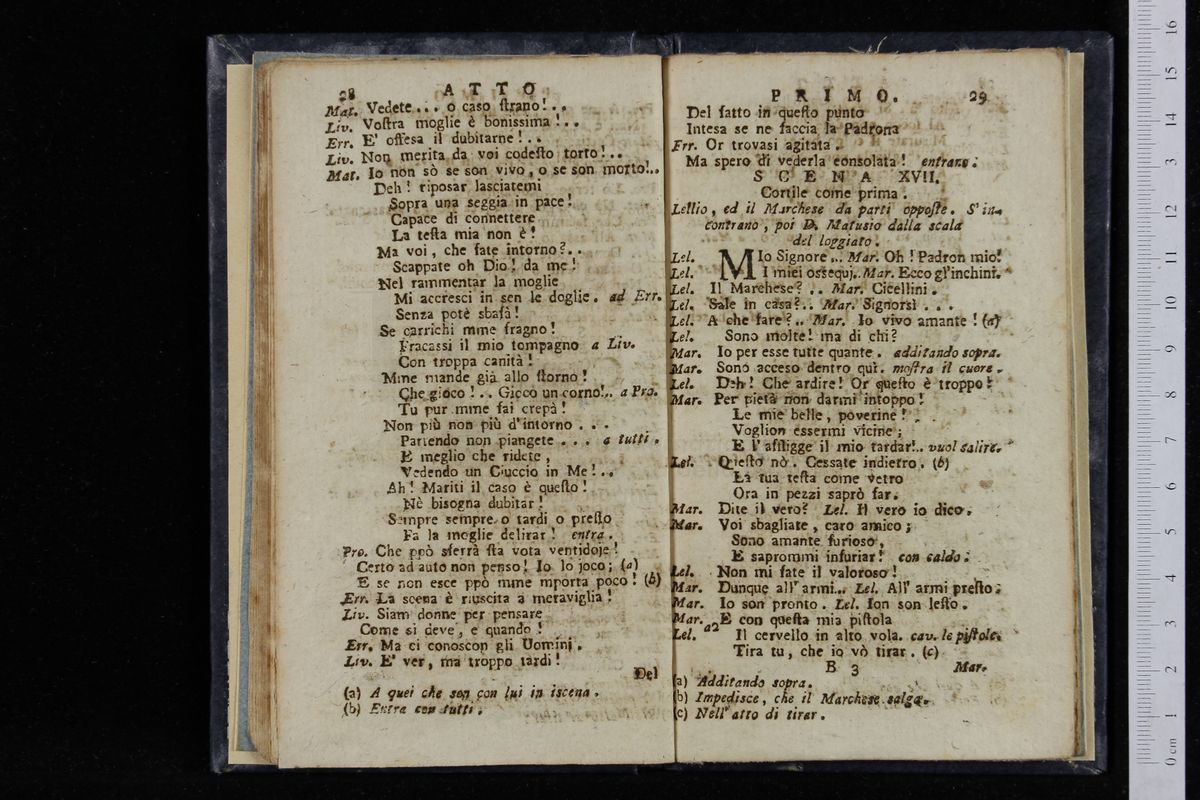 28 ATTO
Mat. Vedete... o caso ſtrano!..
Liv. Voſtra moglie è bonissima!..
Err. E' offesa il dubitarne!..
Liv. Non merita da voi codeſto torto!..
Mat. Io non sò se son vivo, o se son morto!..
Deh! riposar lasciatemi
Sopra una seggia in pace!
Capace di connettere
La teſta mia non è!
Ma voi, che fate intorno?..
Scappate oh Dio! da me!
Nel rammentar la moglie
Mi accresci in sen le doglie. ad Err.
Senza potè sbafà!
Se carrichi mme fragno!
Fracassi il mio tompagno a Liv.
Con troppa canità!
Mme mande già allo ſtorno!
Che gioco!.. Gioco un corno!.. a Pro.
Tu pur mme fai crepà!
Non più non più d'intorno...
Partendo non piangete... a tutti.
E meglio che ridete,
Vedendo un Ciuccio in Me!..
Ah! Mariti il caso è queſto!
Nè bisogna dubitar!
Sempre sempre o tardi o preſto
Fa la moglie delirar! entra.
Pro. Che ppò sferrà ſta vota ventidoje!
Certo ad auto non penso! Io lo joco; (a)
E se non esce ppò mme mporta poco! (b)
Err. La scena è riuscita a meraviglia!
Liv. Siam donne per pensare
Come si deve, e quando!
Err. Ma ci conoscon gli Uomini.
Liv. E' ver, ma troppo tardi!
Del
(a) A quei che son con lui in iscena.
(b) Entra con tutti.
PRIMO. 29
Del fatto in queſto punto
Intesa se ne faccia la Padrona
Err. Or trovasi agitata.
Ma spero di vederla consolata! entrano.
SCENA XVII.
Cortile come prima.
Lellio, ed il Marchese da parti oppoſte. S'in-
contrano, poi D. Matusio dalla scala
del loggiato.
Lel. MIo Signore... Mar. Oh! Padron mio!
Lel. I miei ossequj.. Mar. Ecco gl'inchini.
Lel. Il Marchese?.. Mar. Cicellini.
Lel. Sale in casa?.. Mar. Signorsì...
Lel. A che fare?.. Mar. Io vivo amante! (a)
Lel. Sono molte! ma di chi?
Mar. Io per esse tutte quante. additando sopra.
Mar. Sono acceso dentro quì. moſtra il cuore.
Lel. Deh! Che ardire! Or queſto è troppo!
Mar. Per pietà non darmi intoppo!
Le mie belle, poverine!
Voglion essermi vicine;
E l'affligge il mio tardar!.. vuol salire.
Lel. Queſto nò. Cessate indietro. (b)
La tua teſta come vetro
Ora in pezzi saprò far.
Mar. Dite il vero? Lel. Il vero io dico.
Mar. Voi sbagliate, caro amico;
Sono amante furioso,
E saprommi infuriar! con caldo.
Lel. Non mi fate il valoroso!
Mar. Dunque all'armi... Lel. All'armi preſto.
Mar. Io son pronto. Lel. Ion son leſto.
Mar. E con queſta mia piſtola
Lel. a2 Il cervello in alto vola. cav. le piſtole.
Tira tu, che io vò tirar. (c)
B 3 Mar.
(a) Additando sopra.
(b) Impedisce, che il Marchese salga.
(c) Nell'atto di tirar.
16
15
14
13
12
11
10
9
8
7
6
5
4
3
2
1
0 cm